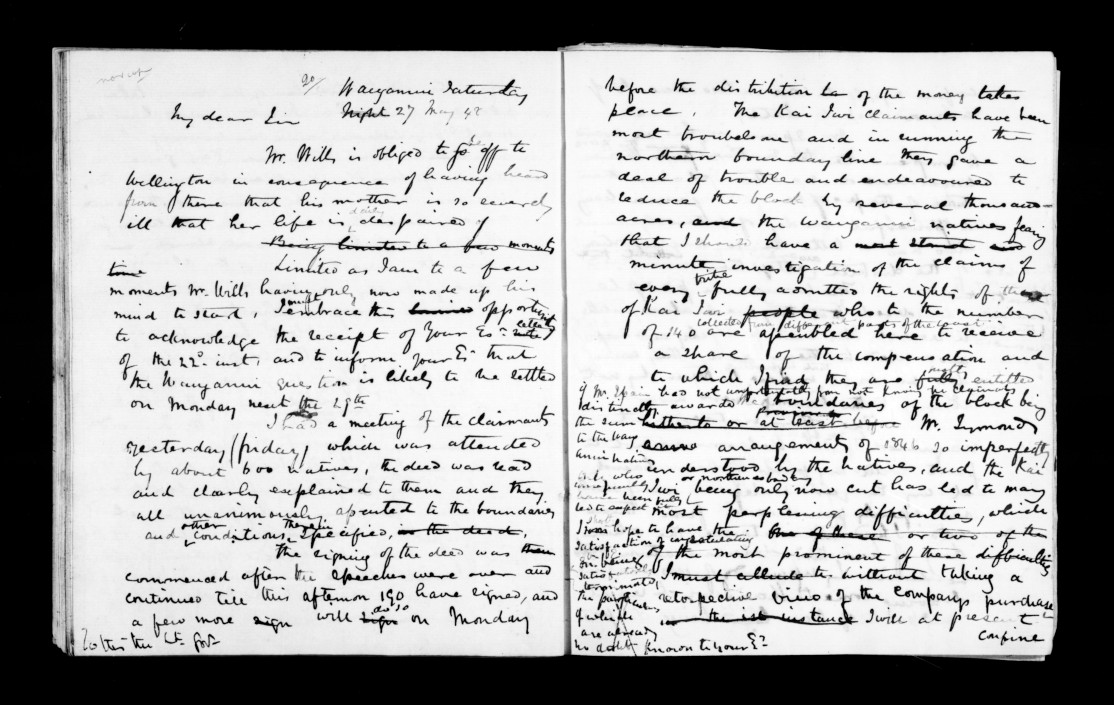 90/ Wanganui Saturday
My dear Sir Night 27 May 48
Mr. Wills is obliged to go off to
Wellington in consequence of having heard
from there that his mother is so severely
ill that her life is daily despaired of
Being limited to a few moments
time Limited as I am to a few
moments Mr. Wills having only now made up his
mind to start, I must embrace this opportunity
to acknowledge the receipt of Your Ex.cy letter
of the 22d. inst. and to inform your Ex.y that
the Wanganui question is likely to be settled
on Monday next the 29th
I had a meeting of the claimants
yesterday (friday) which was attended
by about 600 natives, the deed was read
and clearly explained to them and they
all unanimously assented to the boundaries
and other conditions therein specified, in the deed,
the signing of the deed was then
commenced after the speeches were over and
continued till this afternoon 190 have signed, and
a few more sign will sign do so on Monday
To His the Lt. Gov.
before the distribution of the money takes
place. The Kai Iwi claimants have been
most troublesome and in running the
northern boundary line they gave a
deal of trouble and endeavoured to
reduce the block by several thousand
acres, and the Wanganui natives fearing
that I should have a most strict and
minute investigation of the claims of
every tribe fully admitted the rights of
of Kai Iwi people who to the number
of 140 are collected from different parts of the coast
assembled here to receive
a share of the compensation and
to which I find they are fully justly entitled
Mr. Spain had not
distinctly awarded the boundaries of the block being
hitherto or at least before Mr. Symonds
some arrangement of 1846 so imperfectly
understood by the natives, and the Kai
Iwi or northern boundary being only now cut has led to many
most perplexing difficulties, which
I hope to have the One of these or two of the
satisfaction of
of the most prominent of these difficulties
I must allude to, without taking a
retrospective view of the Company's purchase
in the 1st instance I will at present
the particulars
of which
are already
no doubt known to your Ex.y
confine